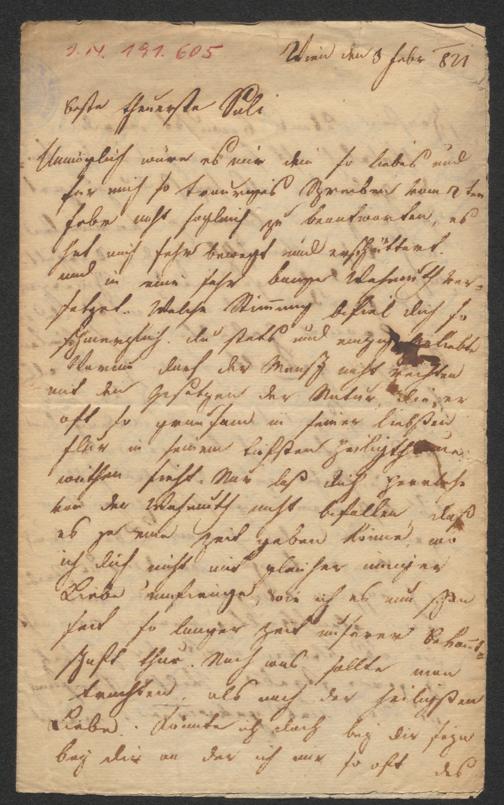 I.N. 191.605
Wien den 3 Febr 821
Beste theuerste Sali
Unmöglich wäre es mir dein so liebes und
für mich so trauriges Schreiben vom 2ten
Febr nicht sogleich zu beantworten, es
hat mich sehr bewegt und erschüttert.
und in eine sehr bange Wehmuth ver-
setzet. Welche Stimmung befiel dich so
schmerzlich. du stets und einzig Geliebte
Warum darf der Mensch nicht rechten
mit den Gesetzen der Natur, die er
oft so grausam in seiner liebsten
Flur in seinem tiefsten Heiligthume
wüthen sieht. Nur laß dich
von der Wehmuth nicht befallen, daß
es je eine Zeit geben könne, wo
ich dich nicht mit gleicher inniger
Liebe umfienge, wie ich es nun schon
seit so langer Zeit unserer Bekannt-
schaft thue. Nach was sollte man
trachten, als nach der heiligsten
Liebe. Könnte ich doch bey dir seyn
bey dir an der ich nur so oft des